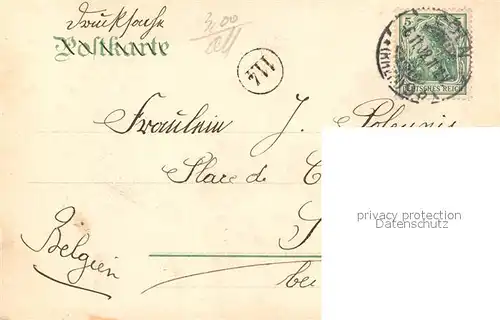 Drucksache
3,00
Postkarte
5 5
DEUTSCHES REICH
114
Fräulein J.
Place de C
privacy protection
Datenschutz
Belgien